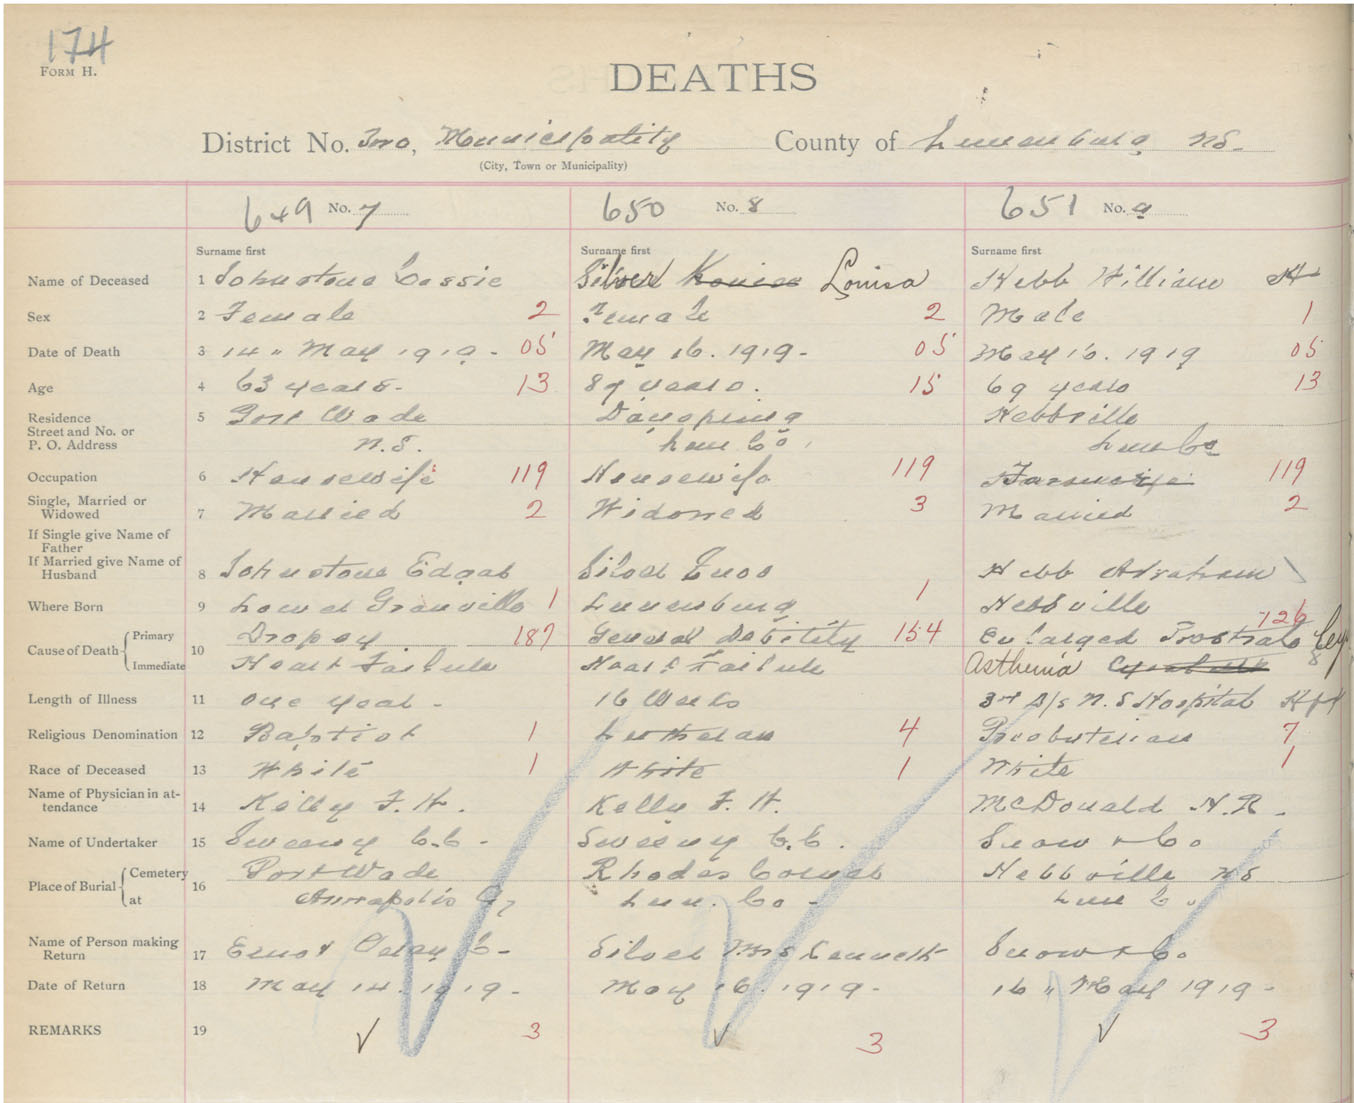 174
FORM H.
DEATHS
District No. Two, Municipality County of Lunenburg NS.
(City, Town or Municipality)
649 No. 7 650 No. 8 651 No. 9
Surname first Surname first Surname first
Name of Deceased 1 Johnstone Cassie Silver Louisa Hebb William H
Sex 2 Female 2 Female 2 Male 1
Date of Death 3 14 " May 1919 - 05 May 16. 1919 - 05 May 16. 1919 05
Age 4 63 years - 13 87 years. 15 69 years 13
Residence 5 Port Wade Hebbville
Street and No. or
P. O. Address N.S. Lun Co, Lun Co
Occupation 6 Housewife 119 Housewife 119 119
Single, Married or
Widowed 7 Married 2 Widowed 3 Married 2
If Single give Name of
Father
If Married give Name of
Husband 8 Johnstone Edgar Silver Enos Hebb Abraham
Where Born 9 Lower Granville 1 Lunenburg 1 Hebbville
126
Cause of Death Primary 10 Dropsy 187 General Debility 154 Enlarged Prostrate
Immediate Heart Failure Heart Failure Asthenia 8
Length of Illness 11 one year - 16 Weeks N.S Hospital Hfx
Religious Denomination 12 Baptist 1 Lutheran 4 Presbuterian 7
Race of Deceased 13 White 1 White 1 White 1
Name of Physician in at-
tendance 14 Kelly F. H. Kelly F. H. McDonald H. R.
Name of Undertaker 15 Sweeny C.C. - Sweeny C.C. Snow & Co
Place of Burial Cemetery 16 Port Wade Rhodes Corner Hebbville NS
at Annapolis Co, Lun. Co - Lun Co.
Name of Person making
Return 17 Ernst C - Silver Mrs Kenneth Snow & Co.
Date of Return 18 May 14. 1919 - May 16. 1919 - 16 " May 1919 -
REMARKS 19 ✓ 3 ✓ 3 ✓ 3